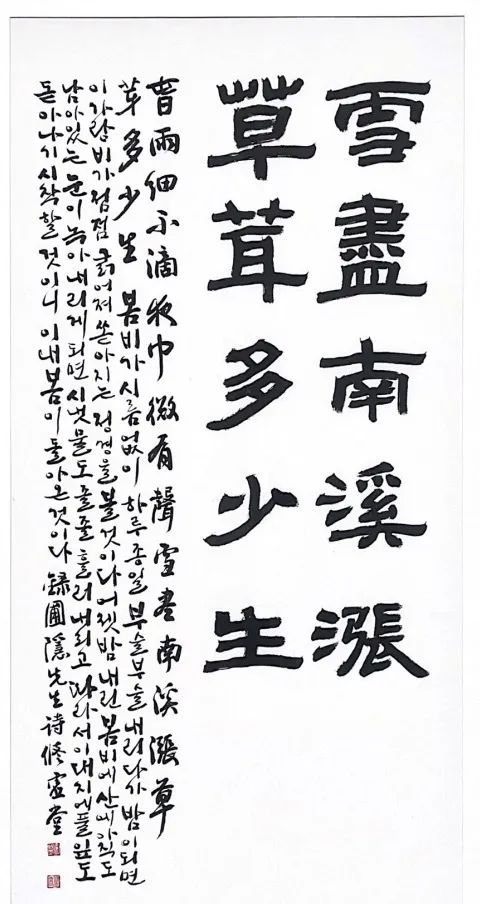 雪盡南溪漲
草茸多少生
春雨細不滴夜中微有聲雪盡南溪漲草
茸多少生 봄비가 시름없이 하루종일 부슬부슬 내리다가 밤이되면
이 가랑비가 점점 굵어져 쏟아지는 정경을 볼 것이다 어젯밤 내린 봄비에 산에 아직도
남아있는 눈이 녹아내리게 되면 시냇물도 줄줄 흘러내리고 따라서 이 대지에 풀잎도
돋아나기 시작할 것이니 이내 봄이 돌아온 것이다 錄圃隱先生詩 修 堂